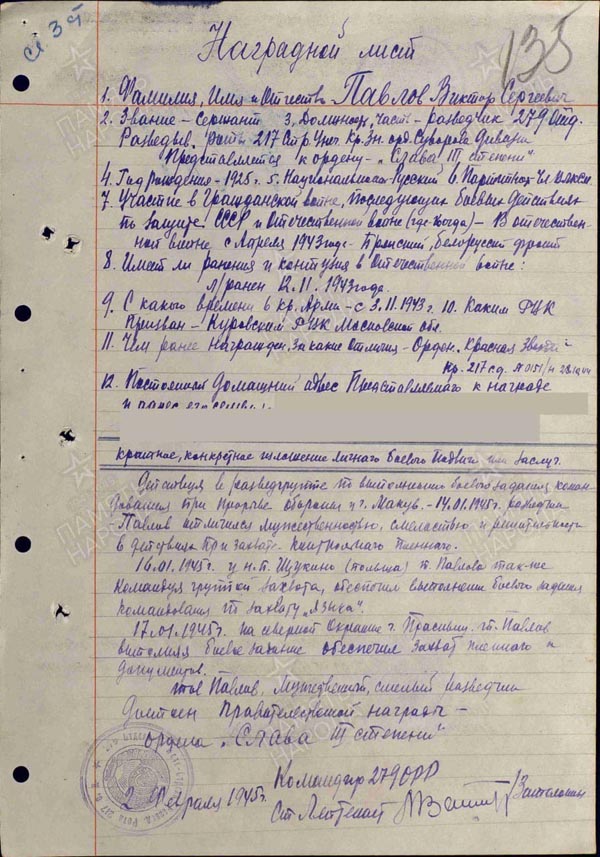 сл 3 ст
135
Наградной лист
1. Фамилия, Имя и Отчество Павлов Виктор Сергеевич
2. Звание – сержант 3. Должность, часть – разведчик 279 Отд.
Разведыв. роты 217 Стр. Унеч. Кр. Зн. орд. Суворова дивизии
Представляется к ордену – „Слава III степени"
4. Год рождения – 1925 г. 5. Национальность – Русский 6. Партийность – Чл. ВЛКСМ
7. Участие в Гражданской войне, последующих боевых действиях
по защите СССР и Отечественной войне (где когда) – В отечествен-
ной войне с Апреля 1943 года – Брянский, Белорусский фронт
8. Имеет ли ранения и контузия в Отечественной войне:
л/ранен 12.11.1943 года.
9. С какого времени в кр. Арми – с 3.11.1943 г. 10. Каким РВК
Призван – Куровским РВК Московской обл.
11. Чем ранее награжден, за какие отличия – Орден. Красная Звезда
Пр. 217 с.д. № 0151/н
12. Постоянный Домашний адрес Представляемого к награде
и адрес его семьи:
краткое, конкретное изложение личного боевого подвига или заслуг.
Действуя в разведгруппе по выполнению боевого задания коман-
дования при прорыве обороны у г. Макув. – 14.01.1945 г. разведчик
– Павлов отличился мужественностью, смелостью и решительностью
в действиях при захвате контрольного пленного.
16.01.1945 г. у н.п. Щукино (польша) т. Павлов так-же
командуя группой захвата, обеспечил выполнение боевого задания
командования по захвату „языка".
17.01.1945 г. на северной окраине г. т. Павлов
выполняя боевое задание обеспечил захват пленного и
документов. –
тов. Павлов, Мужественный, смелый разведчик
Достоин Правительственной награды –
ордена „Слава III степени"
Командир 279 ОРР
Ст. Лейтенант
2 Февраля 1945 г.
ПАМЯТЬ НАРОДА